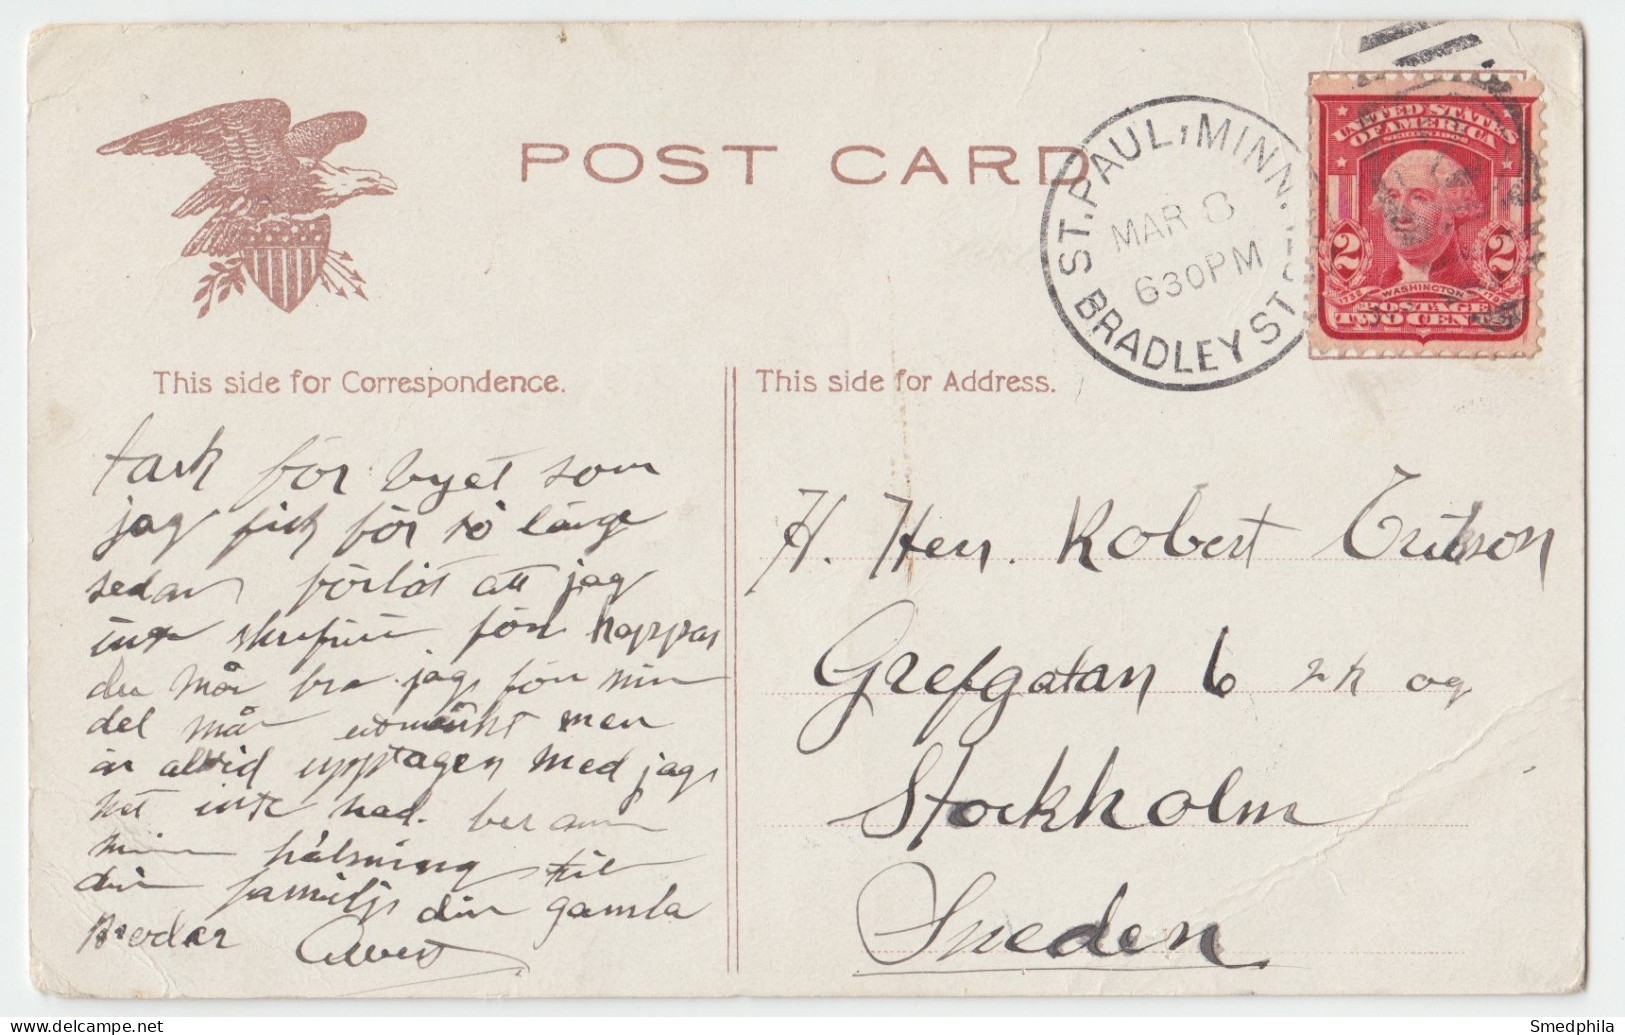 POST CARD
ST. PAUL, MINN.
MAR 8
630PM
BRADLEY ST
UNITED STATES
OF AMERICA
2 2
1732 WASHINGTON
POSTAGE
TWO CENTS
This side for Correspondence.
tack för bryet som
jag fick för så länge
sedan förlåt att jag
inte skrifvit förr hoppas
du mår bra jag för min
del mår utmärkt men
är altid upptagen med jag
vet inte vad.
min hälsning till
din familj din gamla
Broder Albert
This side for Address.
H. Herr. Robert Erikson
Grefgatan 6 og
Stockholm
Sweden
Smedphila